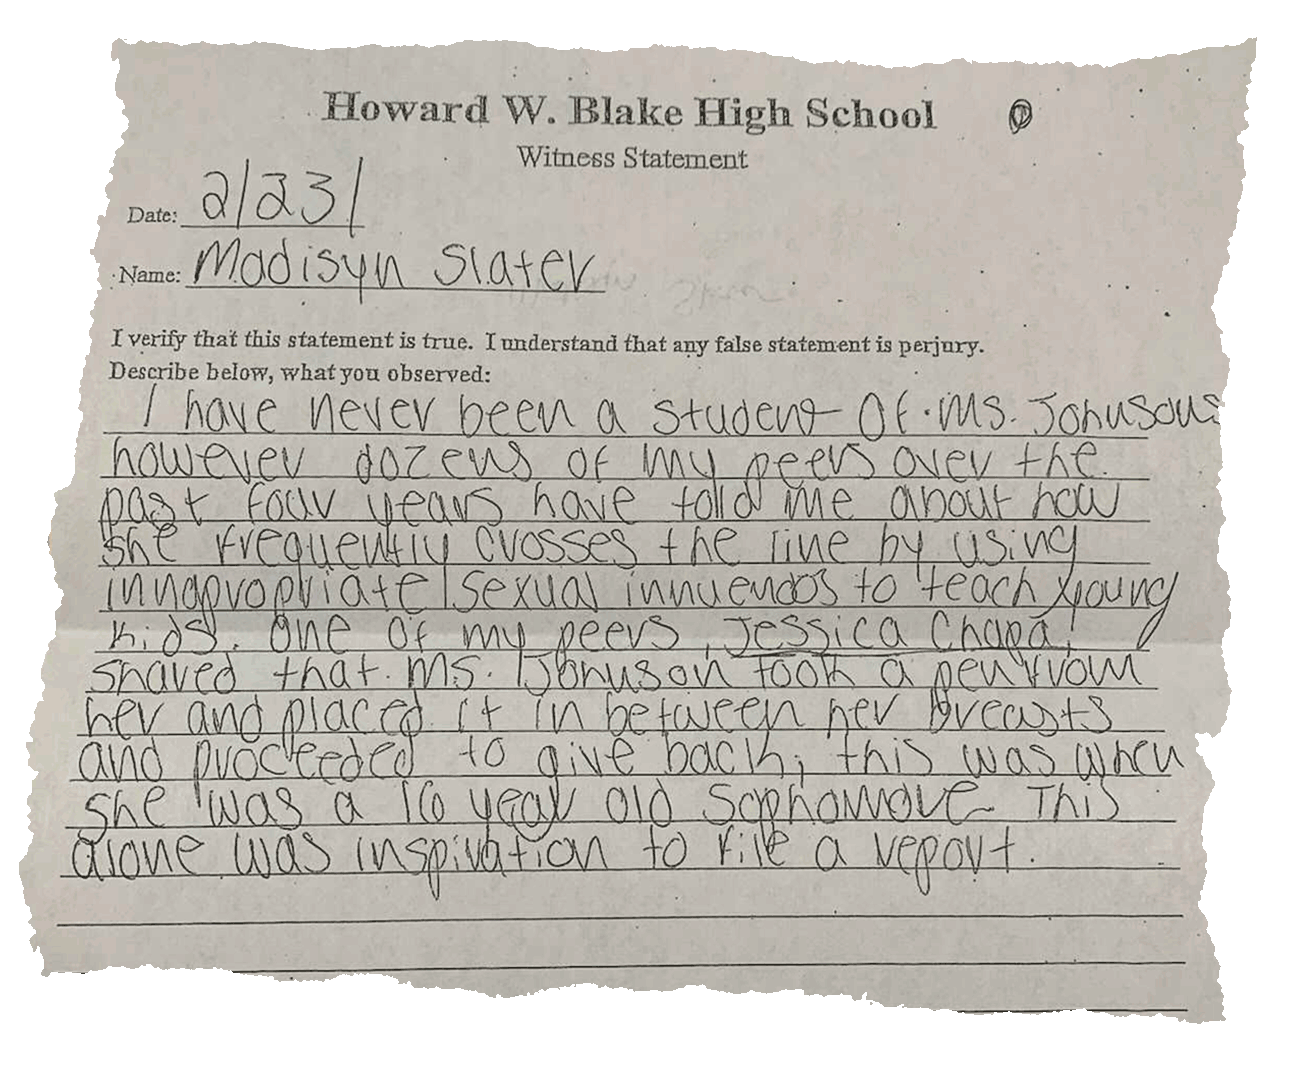 Howard W. Blake High School
Witness Statement
Date: 2/23/
Name: Madisyn Slater
I verify that this statement is true. I understand that any false statement is perjury.
Describe below, what you observed:
I have never been a student of Ms. Johnsons
however dozens of my peers over the
past four years have told me about how
she frequently crosses the line by using
innapropriate sexual innuendos to teach young
kids. One of my peers, Jessica Chapa,
shared that Ms. Johnson took a pen from
her and placed it in between her breasts
and proceeded to give back; this was when
she was a 16 year old sophomore. This
alone was inspiration to file a report.